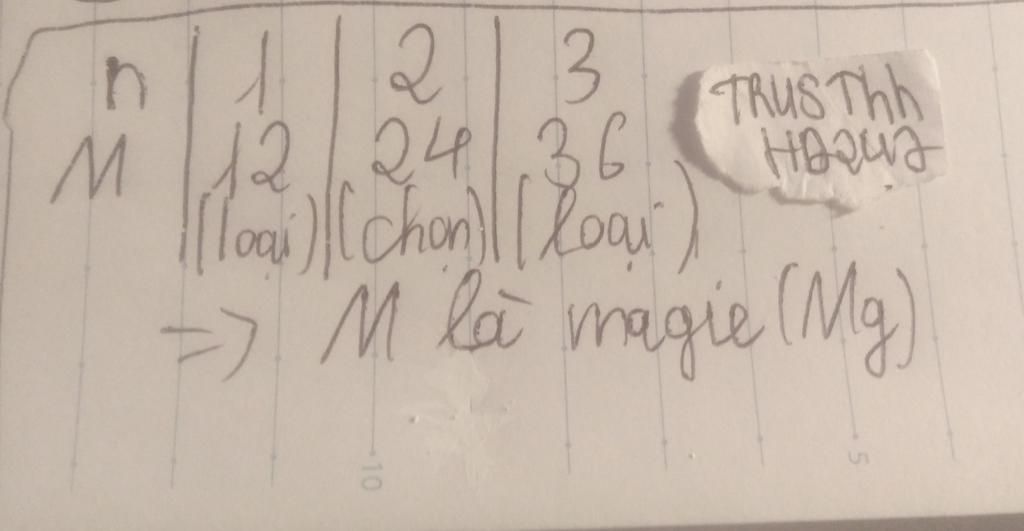 n | 1 | 2 | 3
M | 12 | 24 | 36
| (loại) | (chọn) | (loại)
=> M là magie (Mg)
TRUSThh
HD247
10
5